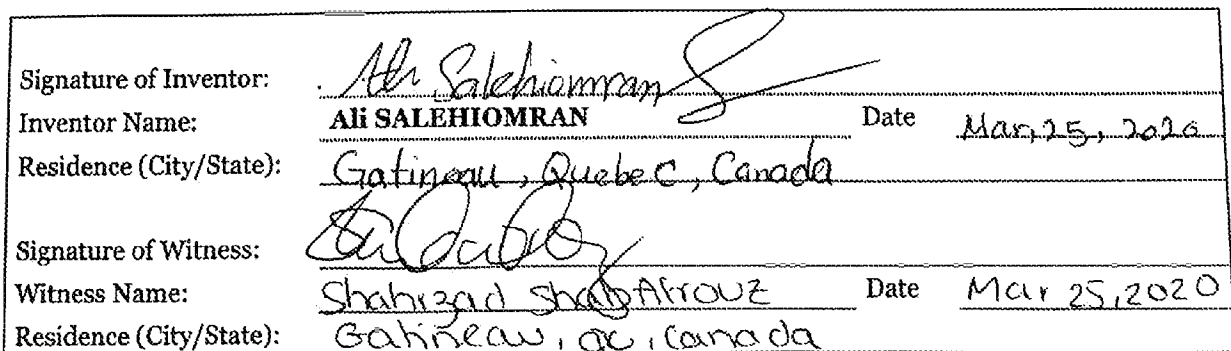 Signature of Inventor: Ali Salehiomran
Inventor Name: Ali SALEHIOMRAN Date Mar, 25, 2020
Residence (City/State): Gatineau, Quebec, Canada
Signature of Witness:
Witness Name: Shahrzad Date Mar 25, 2020
Residence (City/State): Gatineau, QC, Canada